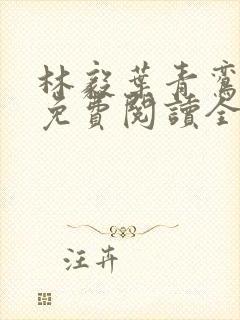 林毅葉青鸞
免費閱讀全
汪卉